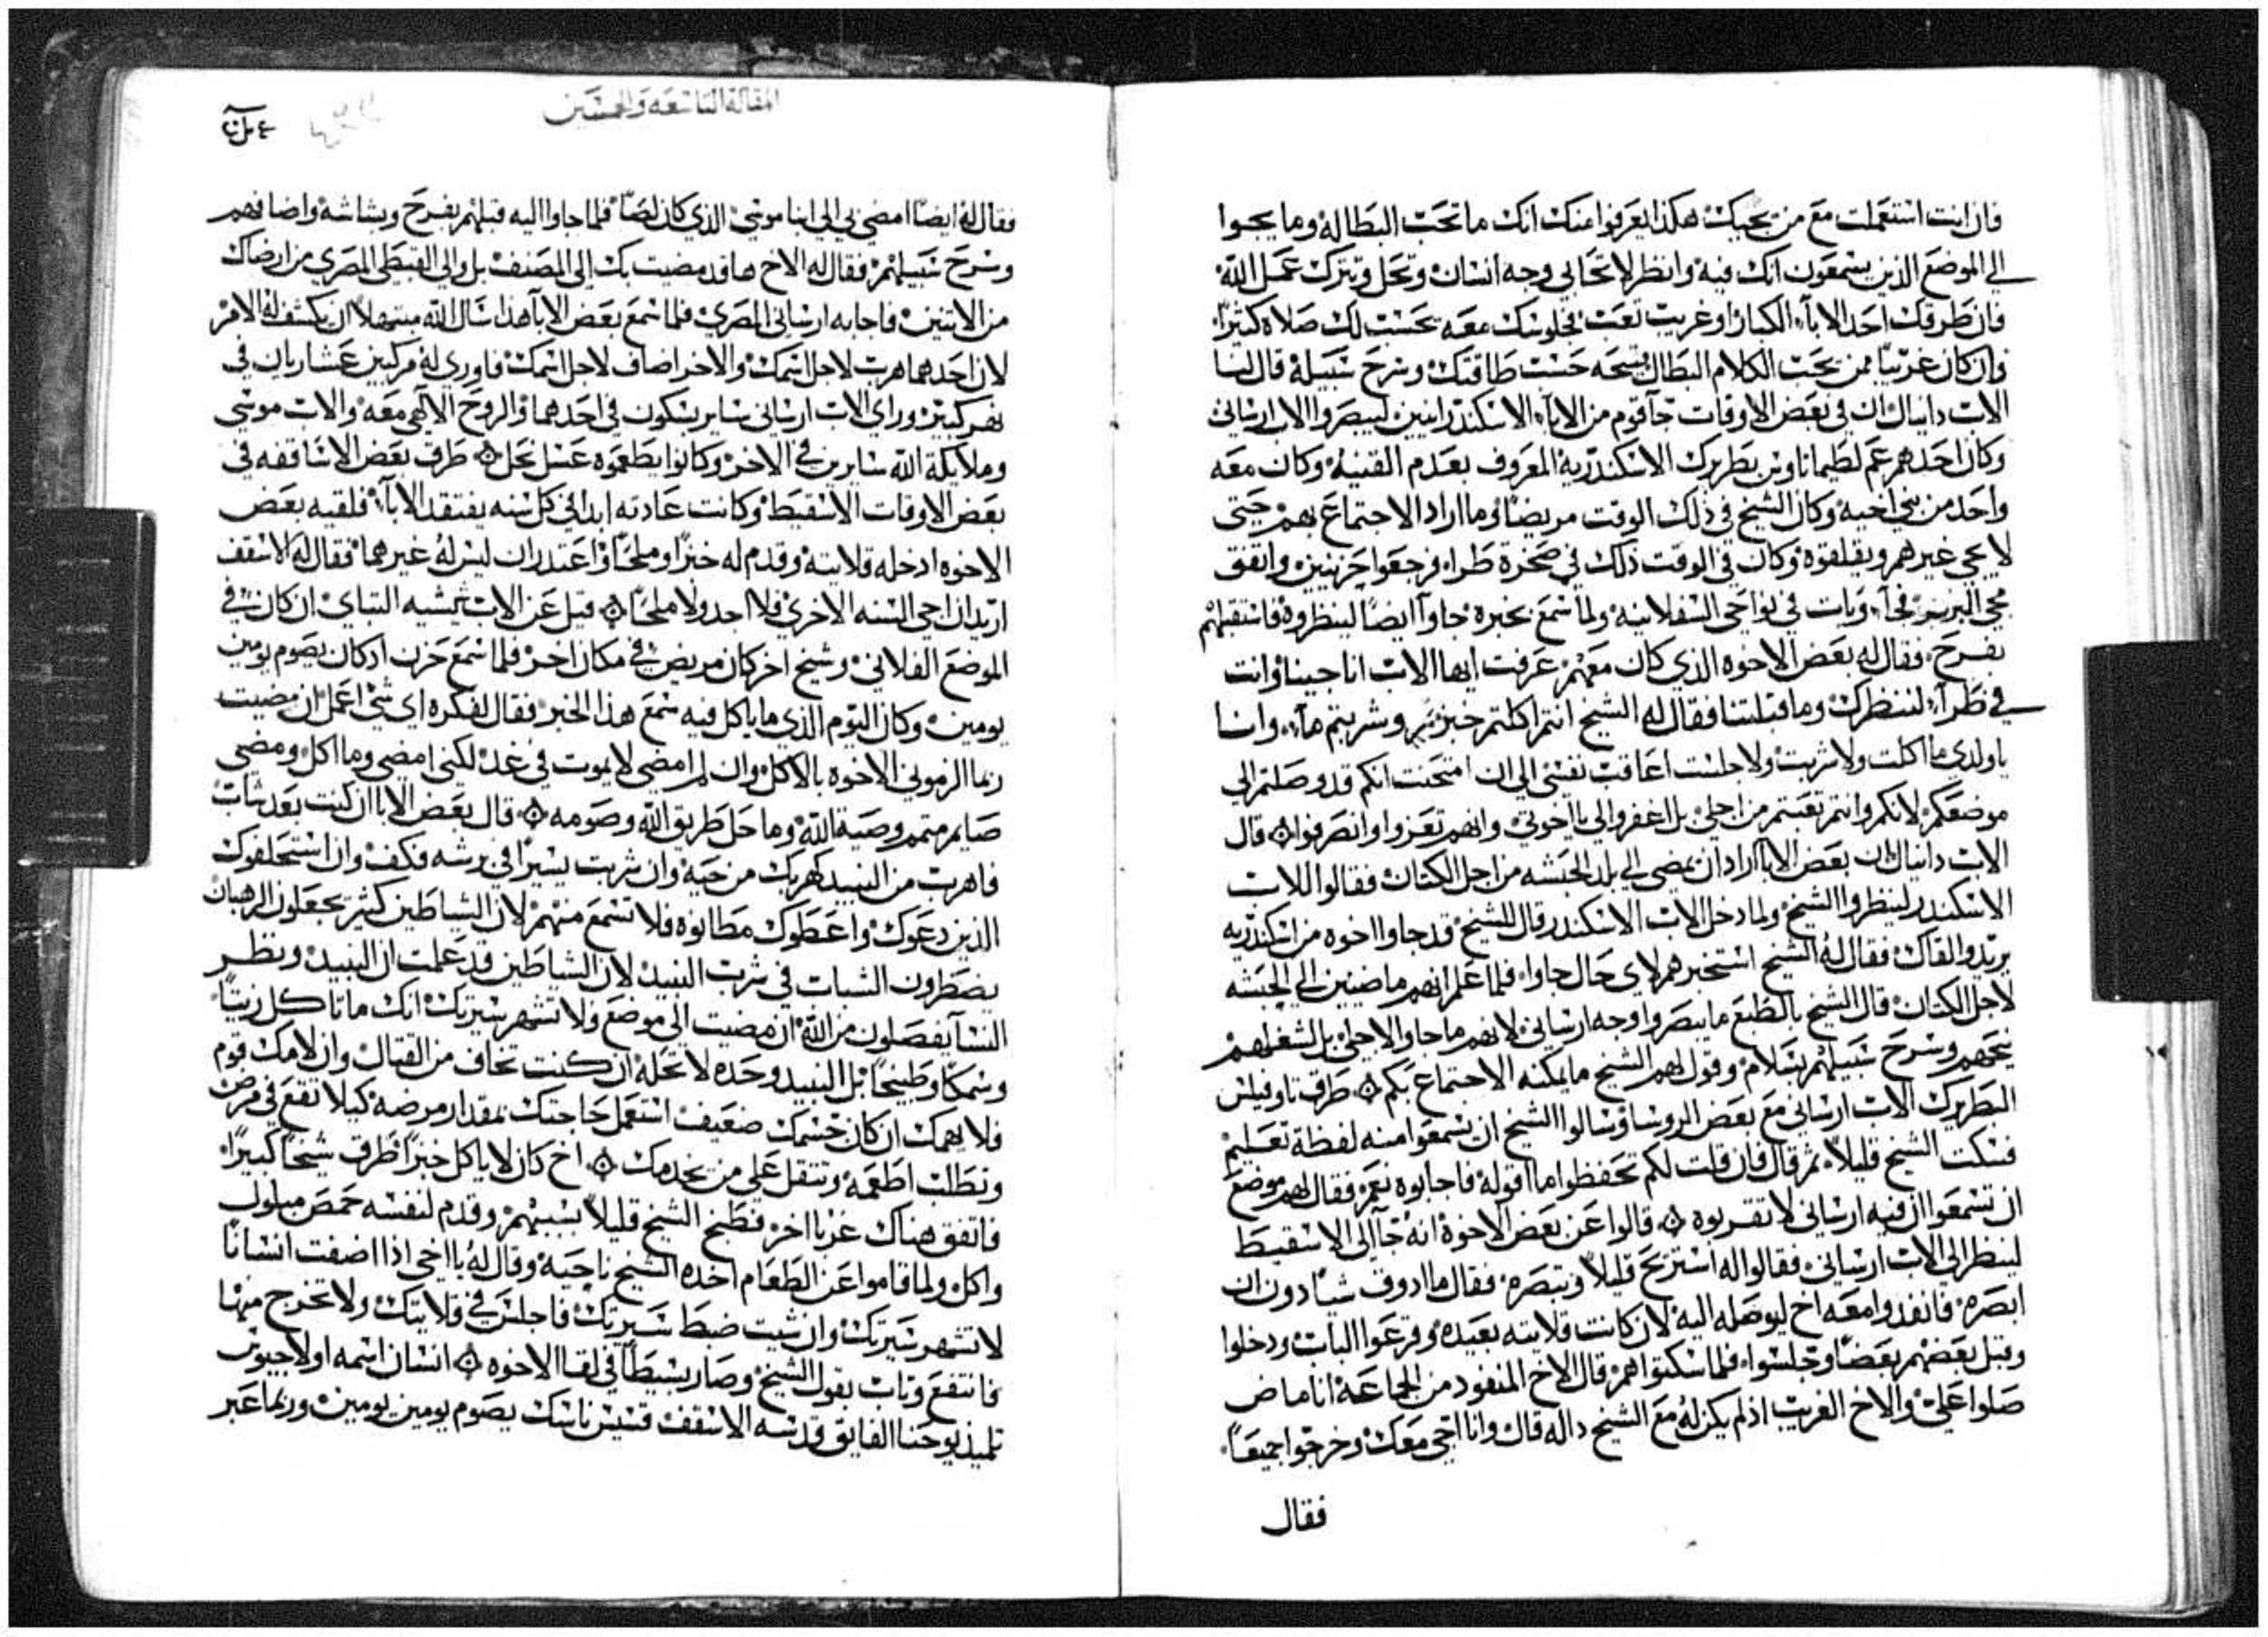 فان انت استعملت مع من يجيك هكذا يعرفوا منك انك ما تحب البطاله وما يجوا
الي الموضع الذين يسمعون انك فيه وانظر لا تحابي وجه انسان وتحل وتترك عمل الله
فان طرقك احد الابآء الكبار او غريب تعب فجلوسك معه تحسب لك صلاه كثيرا
وان كان غريبا ممن يحب الكلام البطال بنيحه حسب طاقتك وسرح سبيله قال لنا
الاب دانيال ان في بعض الاوقات جآ قوم من الابآء الاسكندرانيين ليبصروا الاب ارساني
وكان احدهم عم لطيماتاوس بطريرك الاسكندريه المعروف بعدم القنيه وكان معه
واحد من بني اخيه وكان الشيخ في ذلك الوقت مريضا وما اراد الاجتماع بهم حتي
لا يجي غيرهم ويقلقوه وكان في الوقت ذلك في صخرة طرا فرجعوا حزينين واتفق
مجي البربر فجآء وبات في نواحي السفلانيه ولما سمع بخبره جاوآ ايضا لينظروه فاستقبلهم
بفرح فقال له بعض الاخوه الذي كان معهم عرفت ايها الاب انا جينا وانت
في طرآء لننظرك وما قبلتنا فقال له الشيخ انتم اكلتم خبز وشربتم مآء وانا
يا ولدي ما اكلت ولا شربت ولا جلست اعاقب نفسي الي ان امتحنت انكم قد وصلتم الي
موضعكم لانكم وانتم تعبتم من اجلي بل اغفروا لي يا اخوتي وانهم تعزوا وانصرفوا ۞ قال
الاب دانيال ان بعض الابا اراد ان يمضي الي بلد الحبشه من اجل الكتان فقالوا للاب
الاسكندر لينظروا الشيخ ولما دخل الاب الاسكندر قال للشيخ قد جاوا اخوه من اسكندريه
يريدوا لقاك فقال له الشيخ استخبرهم لاي حال جاوا فلما علم انهم ماضيين الي الحبشه
لاجل الكتان قال الشيخ بالطبع ما يبصروا وجه ارساني لانهم ما جاوا لاجلي بل لشغلهم
نيحهم وسرح سبيلهم بسلام وقول لهم الشيخ ما يمكنه الاجتماع بكم ۞ طرق تاوفيلس
البطريرك الاب ارساني مع بعض الروسا وسالوا الشيخ ان يسمعوا منه لفظة تعليم
فسكت الشيخ قليلا ثم قال فان قلت لكم تحفظوا ما اقوله فاجابوه نعم فقال لهم موضع
ان تسمعوا ان فيه ارساني لا تقربوه ۞ قالوا عن بعض الاخوة انه جآ الي الاسقيط
لينظر الي الاب ارساني فقالوا له استريح قليلا وتبصره فقال ما ادوق شيا دون ان
ابصره فانفدوا معه اخ ليوصله اليه لان كانت قلايته بعيده وقرعوا الباب ودخلوا
وقبل بعضهم بعضا وجلسوا فلما سكتوا هم قال الاخ المنفود من الجماعة انا ماض
صلوا علي والاخ الغريب اذ لم يكن له مع الشيخ داله قال وانا اجي معك وخرجوا جميعا
فقال
المقالة التاسعه والخمسين
فقال له ايضا امضي بي الي ابنا موسي الذي كان لصا فلما جاوا اليه قبلهم بفرح وبشاشه واضافهم
وسرح سبيلهم فقال له الاخ ها قد مضيت بك الي المصنف بل والي القبطي المصري من ارضاك
من الاثنين فاجابه ارساني المصري فلما سمع بعض الابآ هدا سال الله مبتهلا ان يكشف له الامر
لان احدهما هرب لاجل اسمك والاخر اضاف لاجل اسمك فاوري له مركبين عشاريات في
نهر كبير وراي الاب ارساني ساير بسكون في احدهما والروح الالهي معه والاب موسي
وملايكة الله سايرين في الاخر وكانوا يطعموه عسل نحل ۞ طرق بعض الاساقفه في
بعض الاوقات الاسقيط وكانت عادته ابدا في كل سنه يفتقد الابآ فلقيه بعض
الاخوه ادخله قلايته وقدم له خبزا وملحا واعتدر ان ليس له غيرهما فقال له الاسقف
اريد ان اجي السنه الاخري فلا اجد ولا ملحا ۞ قيل عن الاب السباي ان كان في
الموضع الفلاني وشيخ اخر كان مريض في مكان اخر فلما سمع حزن اد كان يصوم يومين
يومين وكان اليوم الذي ما ياكل فيه سمع هذا الخبر فقال لفكره اي شي اعمل ان مضيت
ربما الزموني الاخوه بالاكل وان لم امضي لا يموت في غد لكني امضي وما اكل ومضي
صايم متمم وصية الله وما حل طريق الله وصومه ۞ قال بعض الابا ان كنت بعد شاب
فاهرب من النبيد كهربك من حيه وان شربت يسيرا في برشه فكف وان استحلفوك
الذين دعوك واعطوك مطانوه فلا تسمع منهم لان الشياطين كثير يجعلون الرهبان
يضطرون الشباب في شرب النبيد لان الشياطين قد علمت ان النبيد ونظر
النسآ يفصلون من الله ان مضيت الي موضع ولا تشهر سيرتك انك ما تاكل زيتا
وسمكا وطبيخا بل النبيد وحده لا تحله ان كنت تخاف من القتال وان لامك قوم
فلا يهمك ان كان جسمك ضعيف استعمل حاجتك بمقدار مرضه كيلا تقع في مرض
وتطلب اطعمه وتثقل علي من يخدمك ۞ اخ كان لا ياكل خبزا طرق شيخا كبيرا
فاتفق هناك غربا اخر فطبخ الشيخ قليلا بسببهم وقدم لنفسه حمص مبلول
واكل ولما قاموا عن الطعام اخده الشيخ ناحيه وقال له يا اخي اذا اضفت انسانا
لا تشهر سيرتك وان شيت ضبط سيرتك فاجلس في قلايتك ولا تخرج منها
فانتفع وتاب بقول الشيخ وصار بسيطا في لقا الاخوه ۞ انسان اسمه اولاجيوس
تلميذ يوحنا الفايق قدسه الاسقف قسيس ناسك يصوم يومين يومين وربما عبر